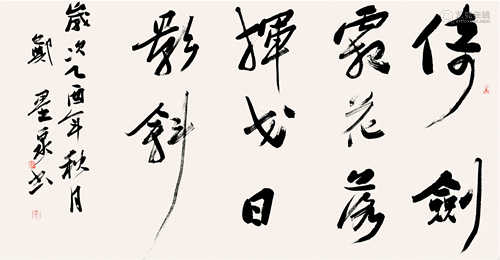 倚劍
霜花落
揮戈日
影斜
歲次乙酉年秋月
鄭泉书